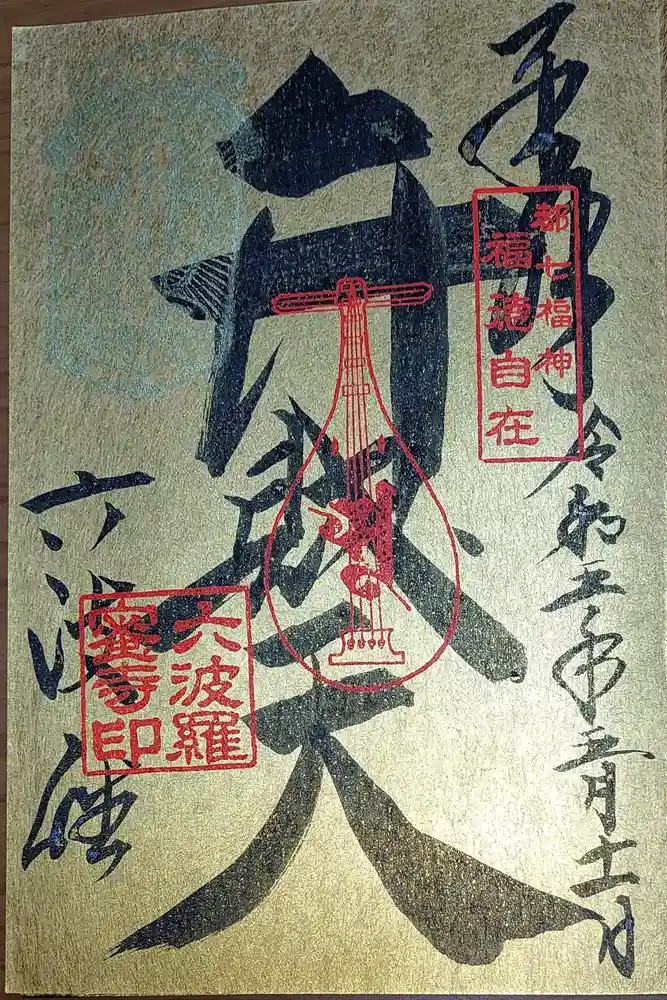 奉拝
都七福神
福徳自在
令和五年五月十一日
弁財天
六波
六波羅
蜜寺印